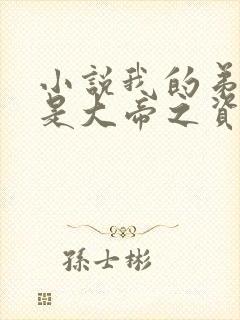 小說我的弟
是大帝之資
孫士彬